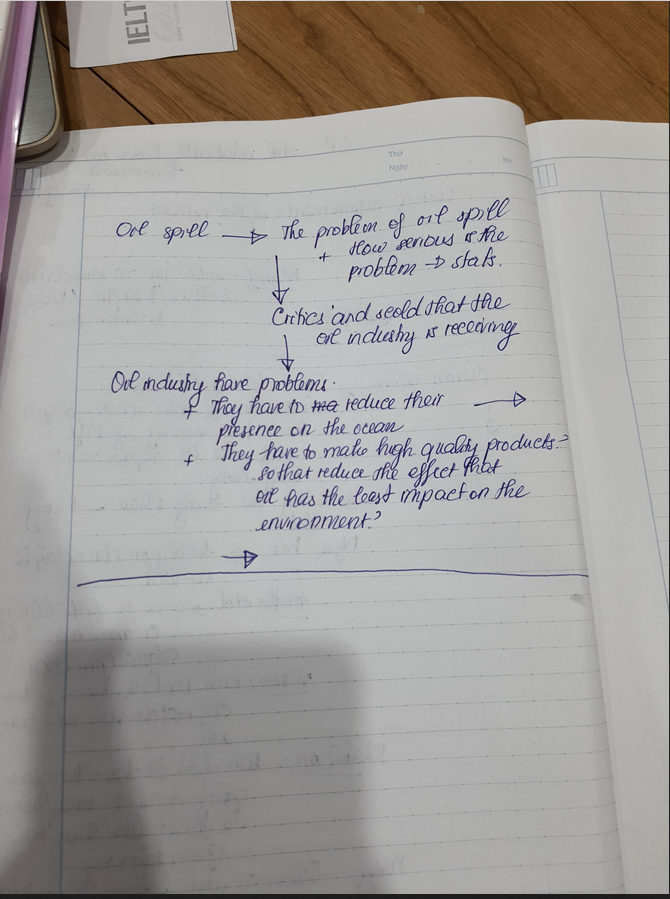 IELT
Thứ
Ngày
No
Oil spill → The problem of oil spill
+ How serious is the
problem → stats.
Critics and scold that the
oil industry is receiving
Oil industry have problems.
+ They have to ma reduce their →
presence on the ocean
+ They have to make high quality products?
so that reduce the effect that
oil has the least impact on the
environment?
→